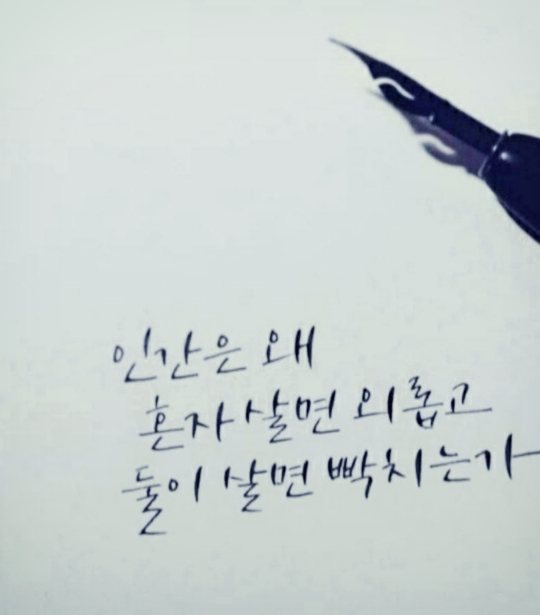 인간은 왜
혼자 살면 외롭고
둘이 살면 빡치는가